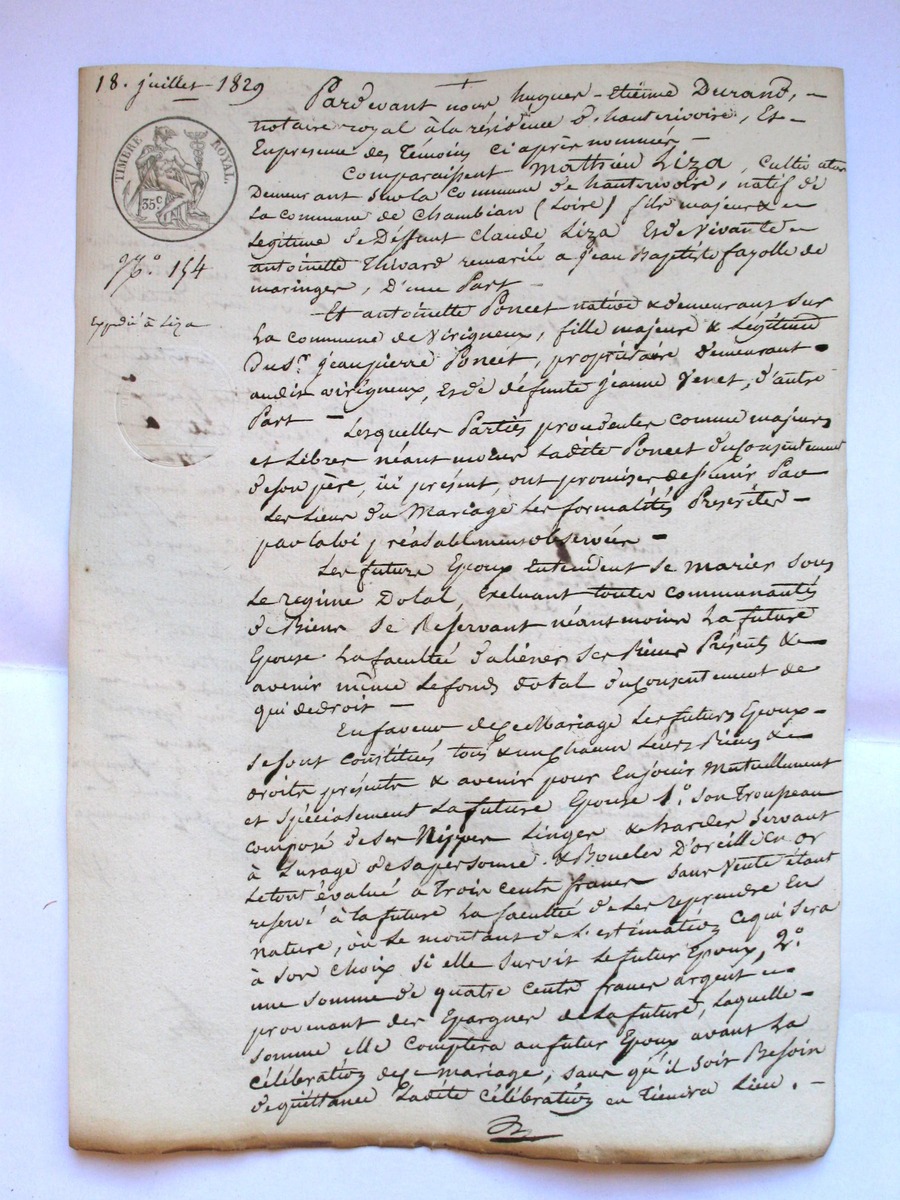 18. juillet 1829
TIMBRE ROYAL
35 c
N.o 154
Expédié à Liza
Pardevant nous hugues-Etiénne Durand,
notaire royal à la résidence d'hauterivoire, Et
En présence des Témoins ci après nommés
Comparaissent Mathieu Liza, Cultivateur
Demeurant sur la commune d'hauterivoire, natif de
La commune de Chambian (Loire) fils majeur &
Légitime de Deffunt Claude Liza Et de Vivante
antoinette Thivard remariée a Jean Baptiste fayolle de
maringes, D'une Part
Et antoinette Poncet native & demeurant sur
La commune de Virigneux, fille majeure & Légitime
Du Sr. Jean pierre Poncet, propriétaire demeurant
audit virigneux, Et de défunte Jeanne Venet, d'autre
Part
Lesquelles Parties procédantes comme majeurs
et Libres néant moins Ladite Poncet du Consentement
de son père, ici présent, ont promis de s'unir Par
Les Liens du Mariage Les formalités Prescrites
par la loi préalablement observées
Les futurs Epoux Entendent se marier sous
Le regime Dotal, Excluant toutes communautés
de Biens se Réservant néantmoins La future
Epouse La faculté d'aliéner ses Biens Présents &
avenir même Le fonds dotal du Consentement de
qui de droit
En faveur de Ce Mariage Les futurs Epoux
se sont constitués tous & un Chacun Leurs Biens &
droits présents & avenir pour En jouir Mutuellement
et spécialement La future Epouse 1.o son Trousseau
composé de ses Nippes Linges & hardes servant
à L'usage de sa personne & Boucles D'oreille en or
Le tout évalué à Trois cents francs sans Vente étant
reservé à la future La faculté de Les reprendre En
nature, ou Le montant de L'estimation ce qui sera
à son choix si elle survit Le futur Epoux, 2.o
une somme de quatre cents francs argent
provenant des Epargnes de La future, Laquelle
somme elle Comptera au futur Epoux avant La
célébration de Ce mariage, sans qu'il soit Besoin
de quittance Ladite célébration en Tiendra Lieu.